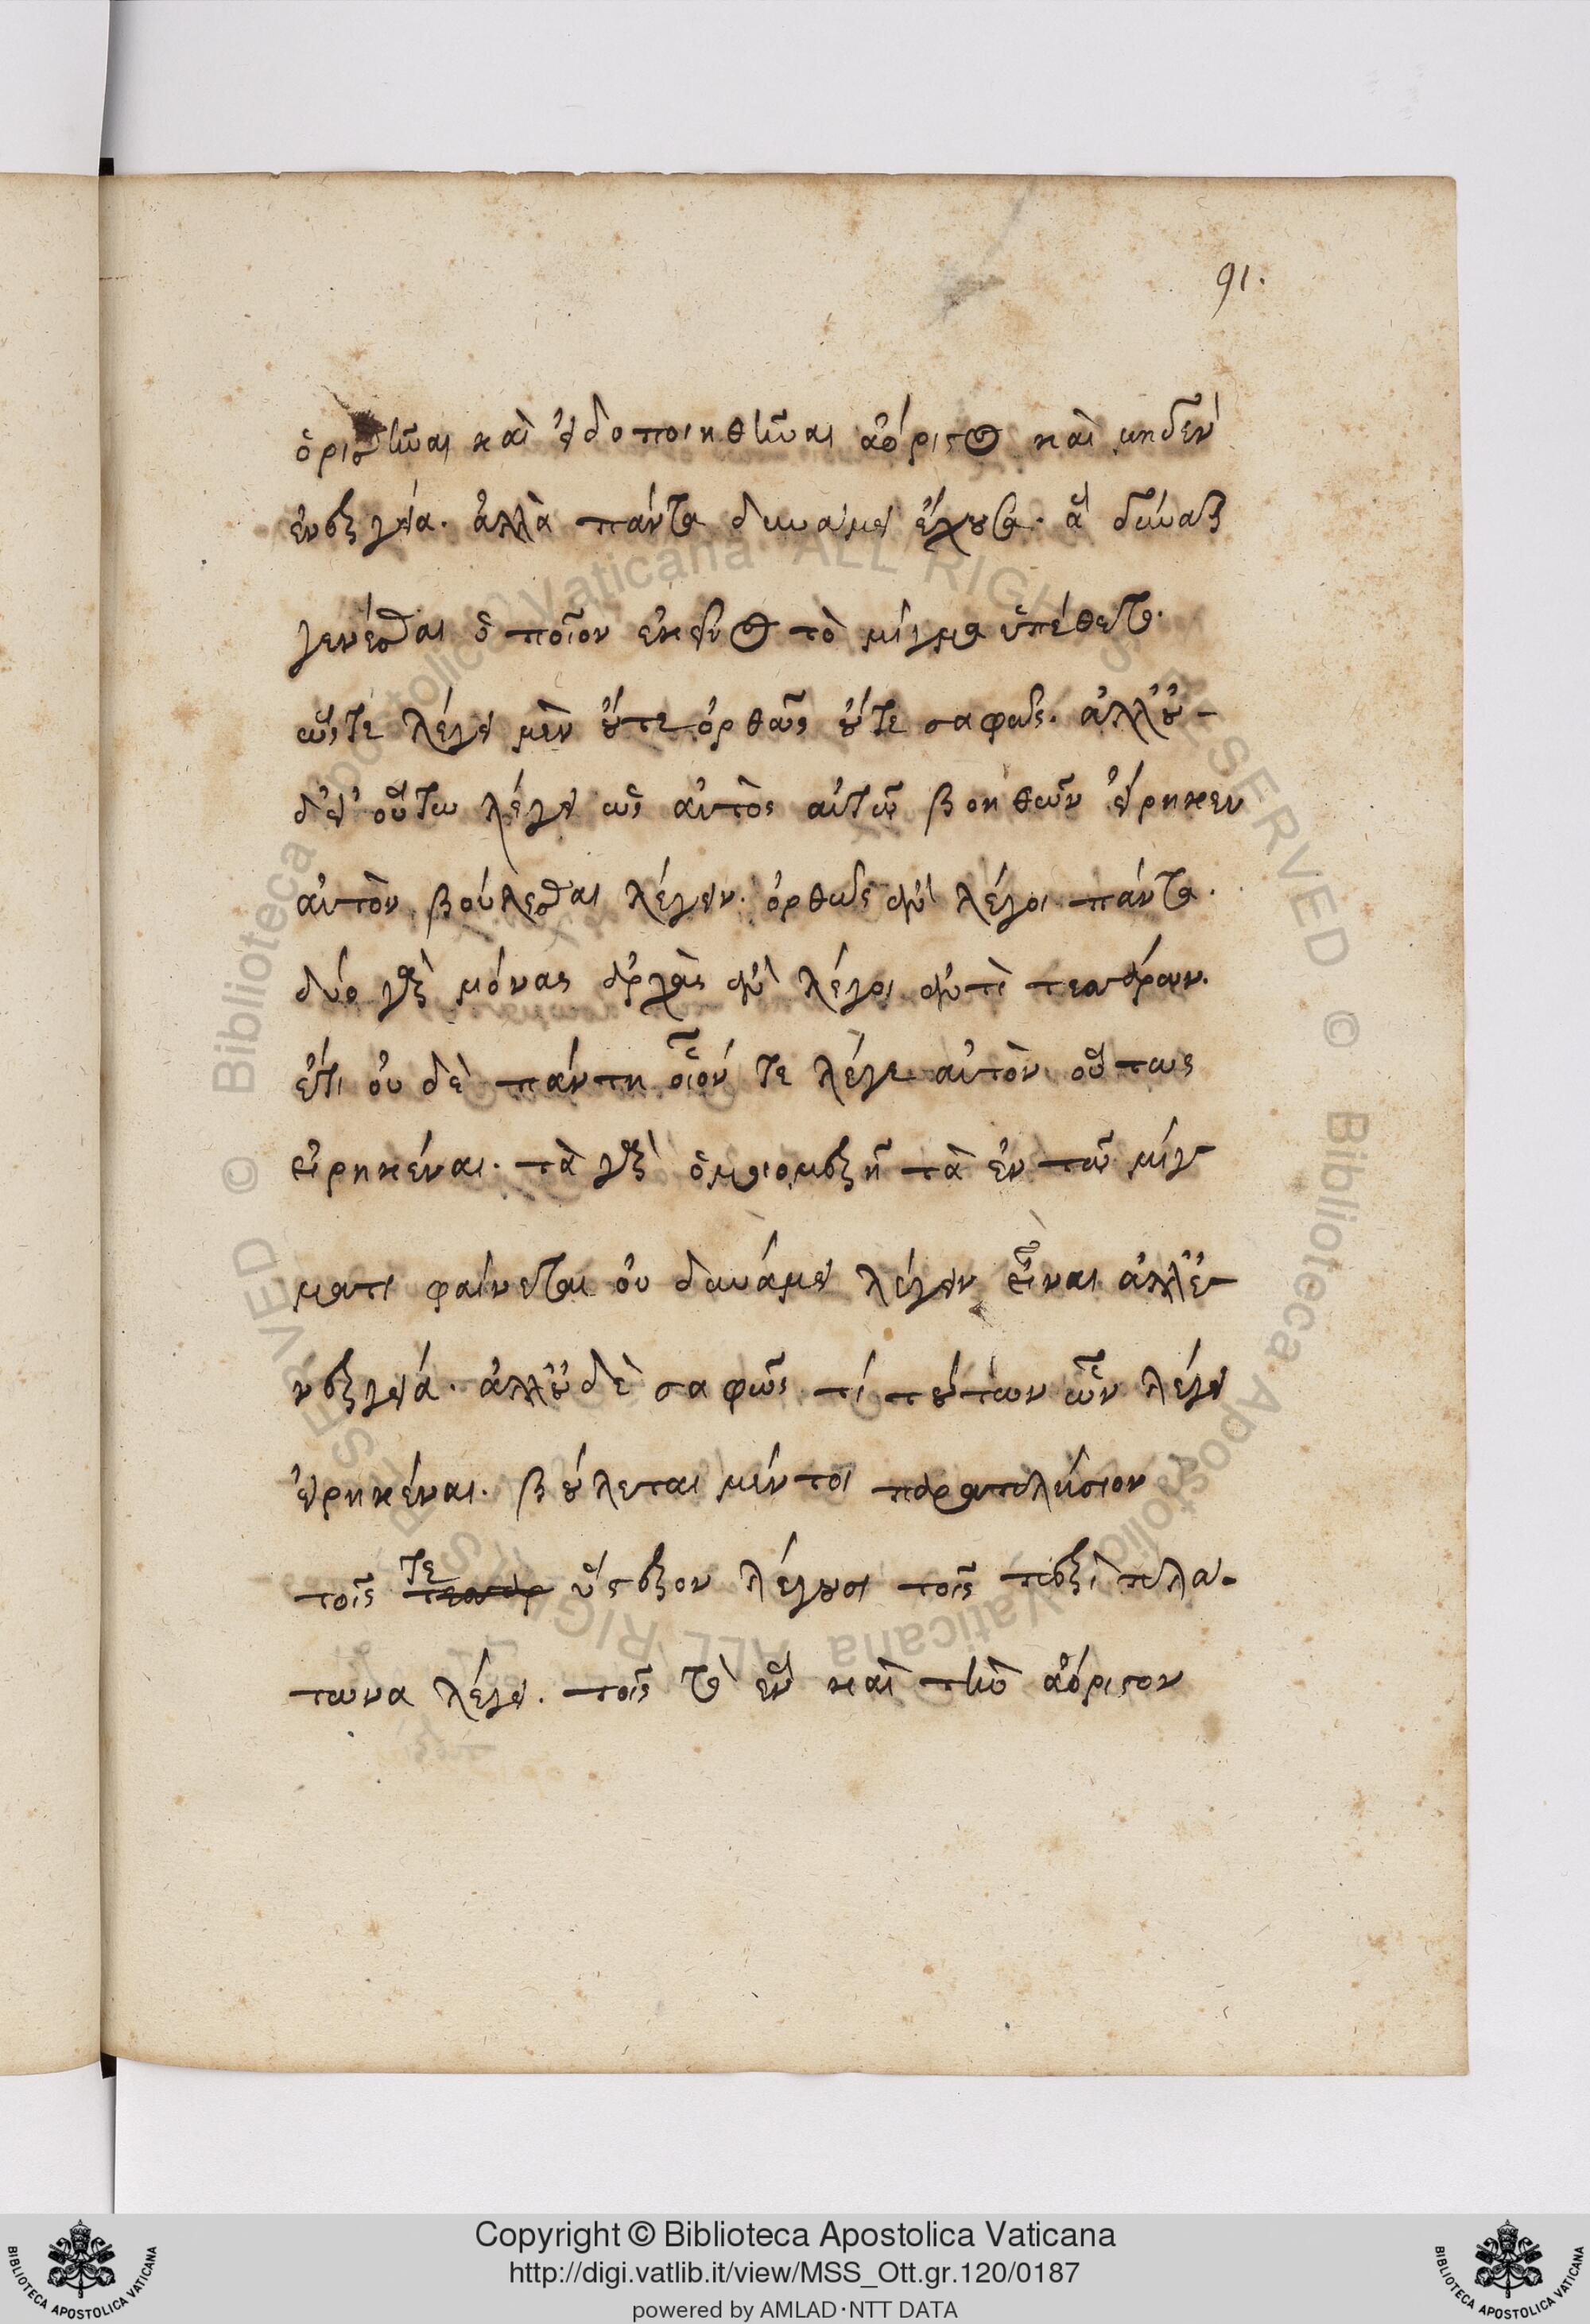 91.
ὁρισθῆναι καὶ εἰδοποιηθῆναι ἀόριστον καὶ μηδὲν
ἐνεργείᾳ. ἀλλὰ πάντα δυνάμει ἔχουσα. ἃ δύναται
γενέσθαι ὁποῖον ἐκεῖνος τὸ μῖγμα ὑπέθετο.
ὥστε λέγει μὲν οὔτε ὀρθῶς οὔτε σαφῶς. ἀλλ' οὐ-
δ' εἰ οὕτω λέγει ὡς αὐτὸς αὐτῷ βοηθῶν εἴρηκεν
αὐτὸν βούλεσθαι λέγειν. ὀρθῶς ἂν λέγοι πάντα.
δύο γὰρ μόνας ἀρχὰς ἂν λέγοι ἀντὶ τεσσάρων.
ἔτι οὐδὲ πάντη οἷόν τε λέγειν αὐτὸν οὕτως
εἰρηκέναι. τὰ γὰρ ὁμοιομερῆ τὰ ἐν τῷ μίγ-
ματι φαίνεται οὐ δυνάμει λέγειν εἶναι ἀλλ' ἐ-
νεργείᾳ. ἀλλ' οὐδὲ σαφῶς τί τούτων ὧν λέγει
εἰρηκέναι. βούλεται μέντοι παραπλήσιον
τοῖς τε ὕστερον λέγουσι τοῖς περὶ πλά-
τωνα λέγει. τοῖς τὸ ἓν καὶ τὴν ἀόριστον
Copyright © Biblioteca Apostolica Vaticana
http://digi.vatlib.it/view/MSS_Ott.gr.120/0187
powered by AMLAD·NTT DATA
BIBLIOTECA APOSTOLICA VATICANA
BIBLIOTECA APOSTOLICA VATICANA
© Biblioteca Apostolica Vaticana ALL RIGHTS RESERVED
© Biblioteca Apostolica Vaticana ALL RIGHTS RESERVED